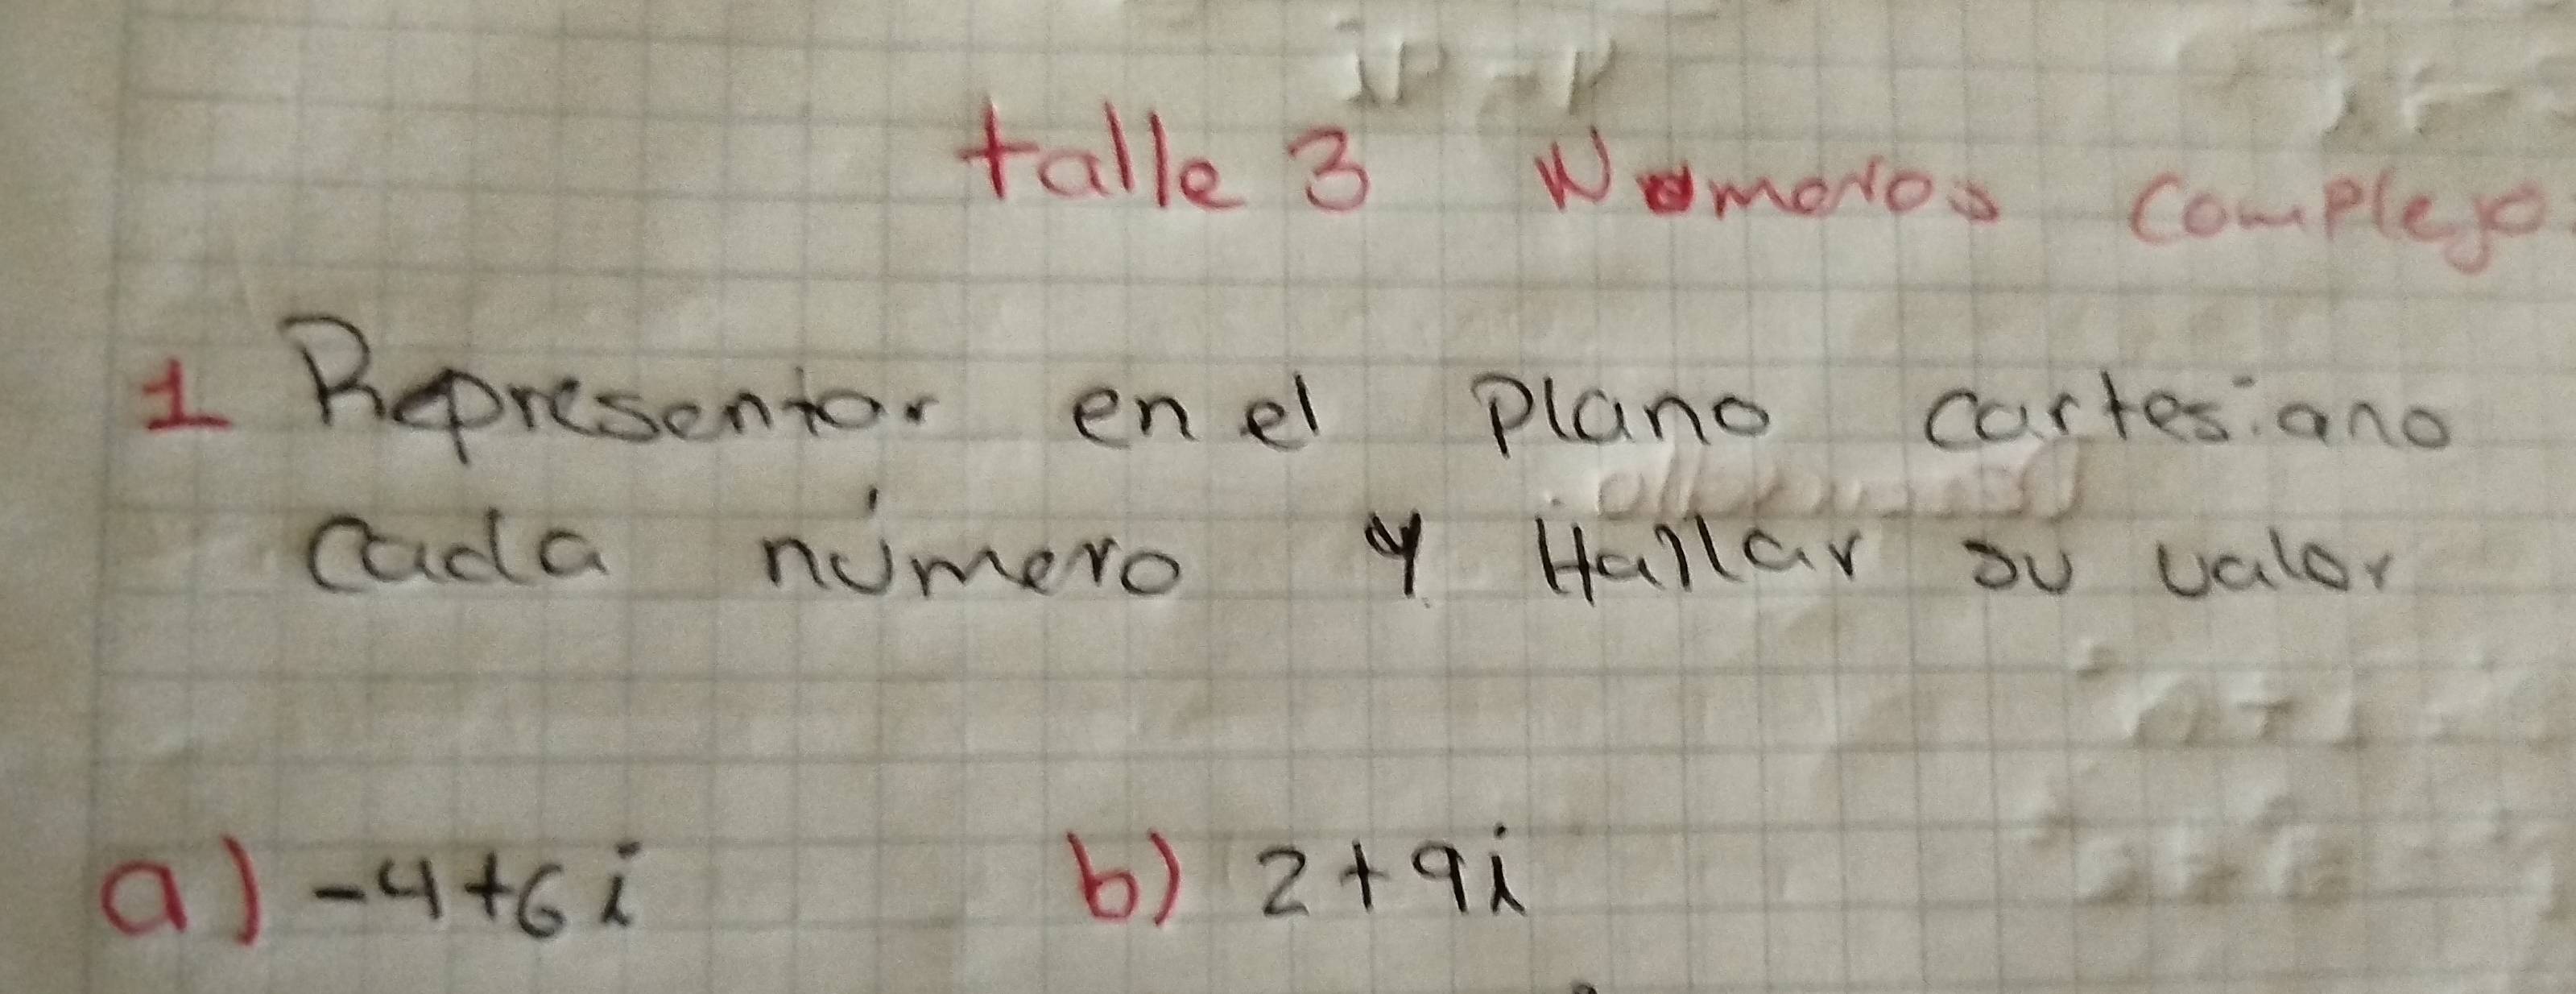 talle 3 Numeros complejo
1 Representar en el plano cartesiano
cada número y Hallar su valor
a) -4+6i b) 2+9i